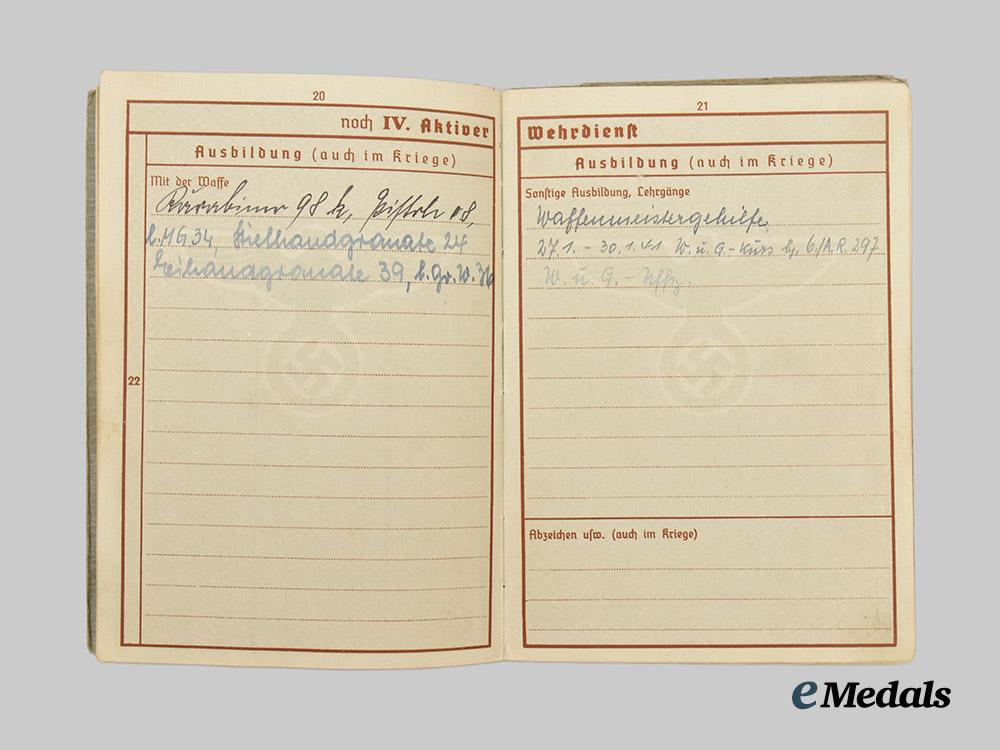 20
noch IV. Aktiver
Ausbildung (auch im Kriege)
Mit der Waffe
Karabiner 98 k, Pistole 08,
l. M.G. 34, Stielhandgranate 24
Eihandgranate 39, l. Gr. W. 36
22
21
Wehrdienst
Ausbildung (auch im Kriege)
Sonstige Ausbildung, Lehrgänge
Waffenmeistergehilfe
27.1. - 30.1.41 W. u. G. - Kurs b. 6./A.R. 297
W. u. G. - Uffz.
Abzeichen usw. (auch im Kriege)
eMedals